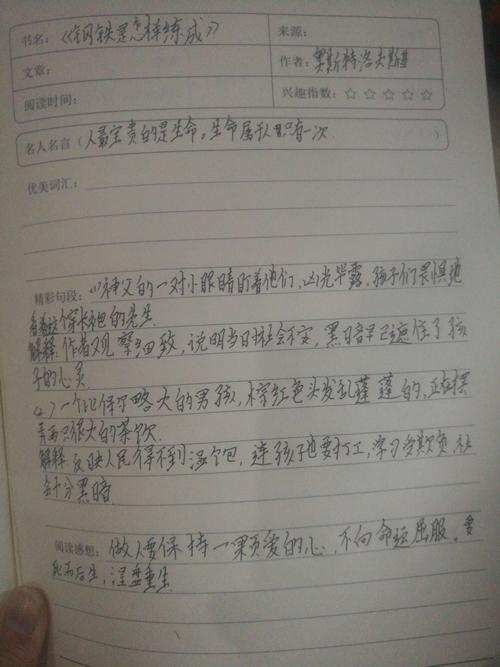 书名：《钢铁是怎样练成》
来源：
文章：
作者：奥斯特洛夫斯基
阅读时间：
兴趣指数：☆ ☆ ☆ ☆ ☆
名人名言（人最宝贵的是生命。生命属于人只有一次）
优美词汇：
精彩句段：(1)神父的一对小眼睛盯着他们，凶光毕露，孩子们畏惧地
看着这个穿长袍的先生
解释：作者观察细致，说明当时社会不安，黑暗早已遮住了孩
子的心灵
(2)一个比保尔略大的男孩，棕红色头发乱蓬蓬的，正在摆
弄两只很大的茶炊
解释：反映人民得不到温饱，连孩子也要打工，学习受欺负 社
会十分黑暗
阅读感想：做人要保持一颗爱的心，不向命运屈服。要
死而后生，涅盘重生